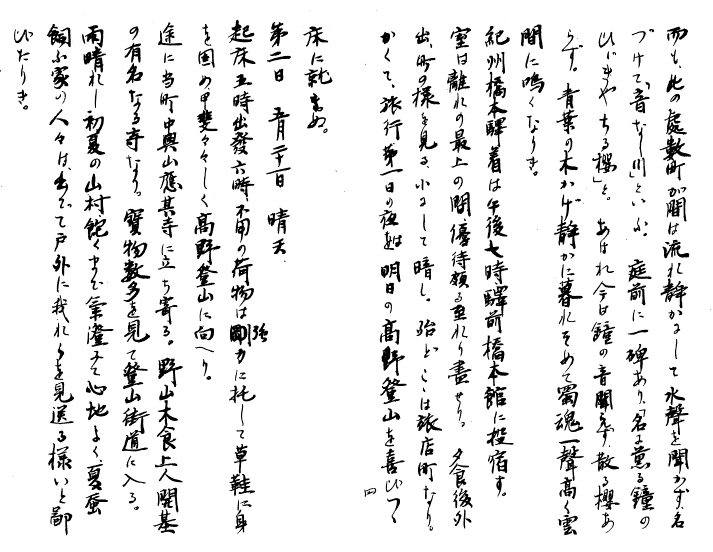 而も、此の處數町が間は流れ静かにして水聲を聞かず、名
づけて、「音なし川」といふ。庭前に一碑あり、「名に薫る鐘の
ひゞきやちる櫻」と。あはれ今日鐘の音聞えず、散る櫻あ
らず。青葉の木かげ静かに暮れそめて蜀魂一聲高く雲
間に鳴くなりき。
紀州橋本驛着は午後七時驛前橋本館に投宿す。
室は離れの最上の間、優待頗る至れり盡せり。夕食後外
出、町の様を見る、小にして暗し。殆どこゝは旅店町なり。
かくて、旅行第一日の夜を明日の高野登山を喜びつゝ
四
床に就きぬ。
第二日 五月二十一日 晴天
起床五時出發六時、不用の荷物は強力に托して草鞋に身
を固め甲斐々々しく高野登山に向へり。
途に当町中興山應其寺に立ち寄る。野山木食上人開基
の有名なる寺なり。寶物数多を見て登山街道に入る。
雨晴れし初夏の山村、飽くまで氣澄みて心地よく、夏蚕
飼ふ家の人々は、出でて戸外に我れらを見送る様いと鄙
びたりき。